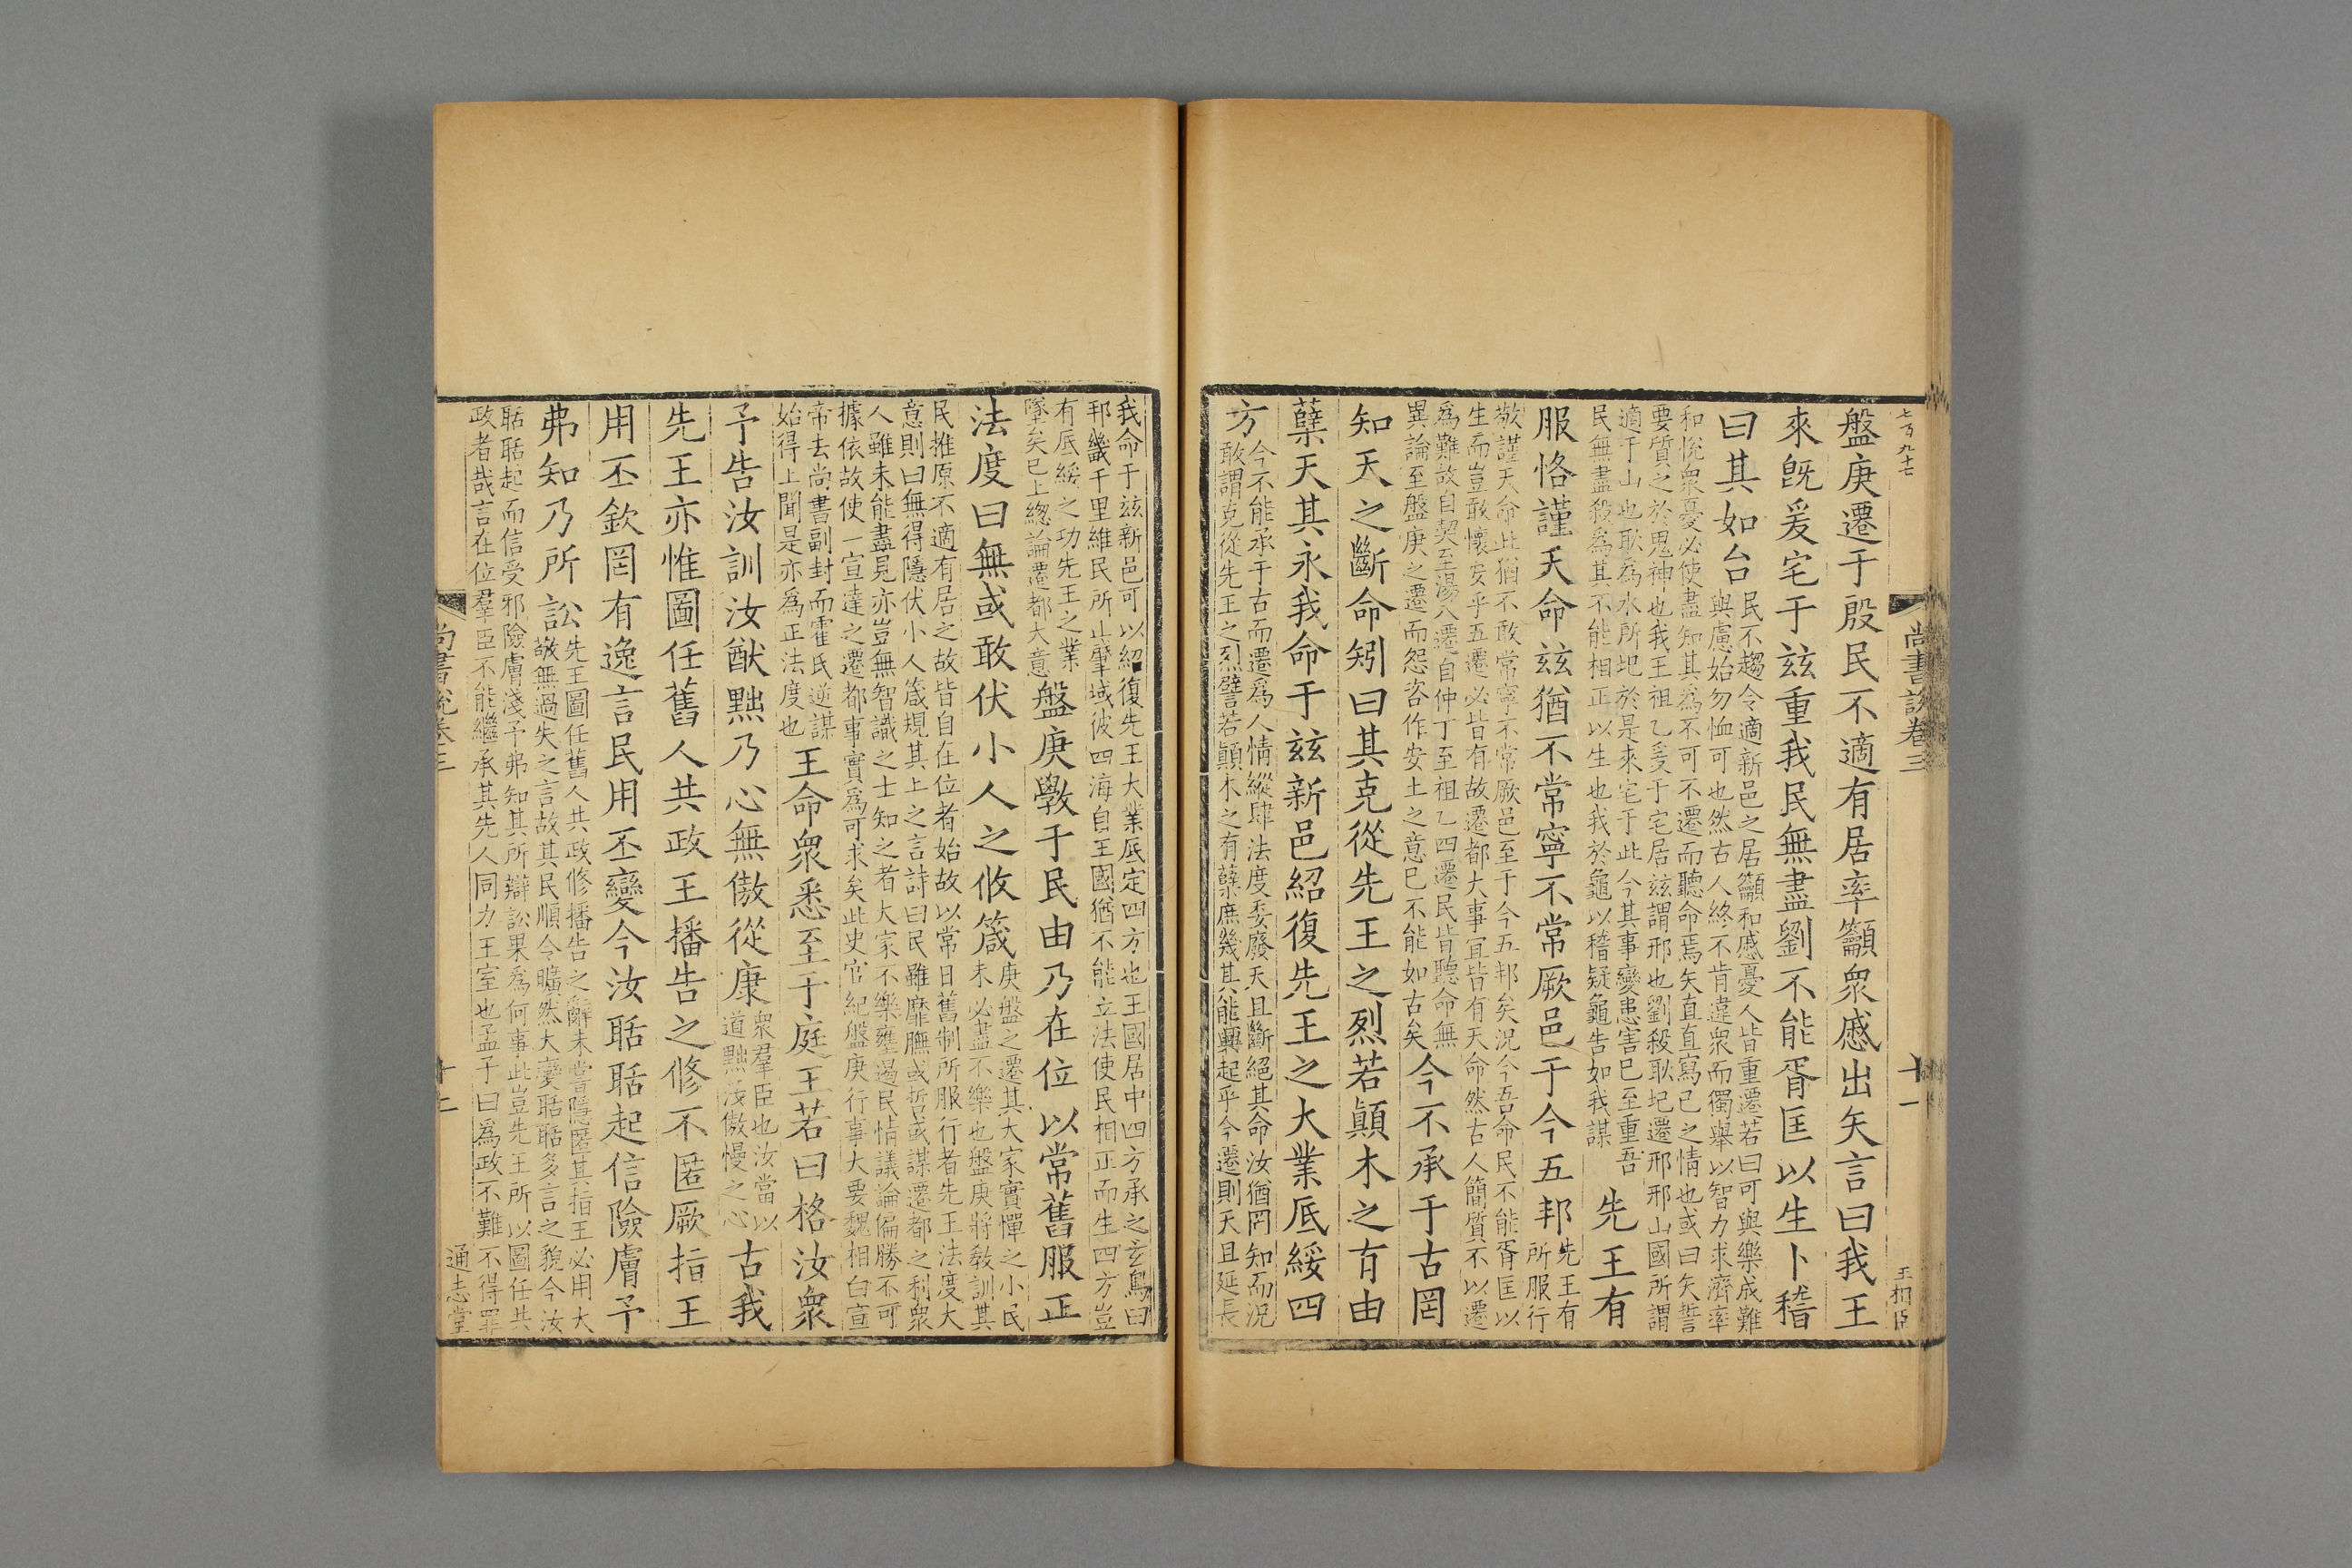 七百九十七
尚書説卷三
十一
王相臣
盤庚遷于殷民不適有居率籲衆慼出矢言曰我王
來旣爰宅于兹重我民無盡劉不能胥匡以生卜稽
曰其如台
民不趨令適新邑之居籲和慼憂人皆重遷若曰可與樂成難
與慮始勿恤可也然古人終不肯違衆而獨舉以智力求濟率
和悅衆憂必使盡知其為不可不遷而聽命焉矢直直寫已之情也或曰矢誓
要質之於鬼神也我王祖乙爰于宅居兹謂邢也劉殺耿圮遷邢邢山國所謂
適于山也耿為水所圮於是來宅于此今其事變患害已至重吾
民無盡殺為其不能相正以生也我於龜以稽疑龜告如我謀
先王有
服恪謹天命兹猶不常寧不常厥邑于今五邦
先王有
所服行
敬謹天命此猶不敢常寧不常厥邑至于今五邦矣況今吾命民不能胥匡以
生而豈敢懷安乎五遷必皆有故遷都大事宜皆有天命然古人簡質不以遷
為難故自契至湯八遷自仲丁至祖乙四遷民皆聽命無
異論至盤庚之遷而怨咨作安土之意已不能如古矣
今不承于古罔
知天之斷命矧曰其克從先王之烈若顛木之有由
蘖天其永我命于兹新邑紹復先王之大業厎綏四
方
今不能承于古而遷為人情縱肆法度委廢天且斷絕其命汝猶罔知而況
敢謂克從先王之烈譬若顛木之有蘖庶幾其能興起乎今遷則天且延長
我命于兹新邑可以紹復先王大業厎定四方也王國居中四方承之玄鳥曰
邦畿千里維民所止肇域彼四海自王國猶不能立法使民相正而生四方豈
有厎綏之功先王之業
墜矣已上總論遷都大意
盤庚斆于民由乃在位以常舊服正
法度曰無或敢伏小人之攸箴
庚盤之遷其大家實憚之小民
未必盡不樂也盤庚將敎訓其
民推原不適有居之故皆自在位者始故以常日舊制所服行者先王法度大
意則曰無得隱伏小人箴規其上之言詩曰民雖靡膴或哲或謀遷都之利衆
人雖未能盡見亦豈無智識之士知之者大家不樂壅遏民情議論偏勝不可
據依故使一宣達之遷都事實為可求矣此史官紀盤庚行事大要魏相白宣
帝去尚書副封而霍氏逆謀
始得上聞是亦為正法度也
王命衆悉至于庭王若曰格汝衆
予告汝訓汝猷黜乃心無傲從康
衆羣臣也汝當以
道黜汝傲慢之心
古我
先王亦惟圖任舊人共政王播告之修不匿厥指王
用丕欽罔有逸言民用丕變今汝聒聒起信險膚予
弗知乃所訟
先王圖任舊人共政修播告之辭未嘗隱匿其指王必用大
敬無過失之言故其民順令曠然大變聒聒多言之貌今汝
聒聒起而信受邪險膚淺予弗知其所辯訟果為何事此豈先王所以圖任共
政者哉言在位羣臣不能繼承其先人同力王室也孟子曰為政不難不得罪
尚書説卷三
十二
通志堂